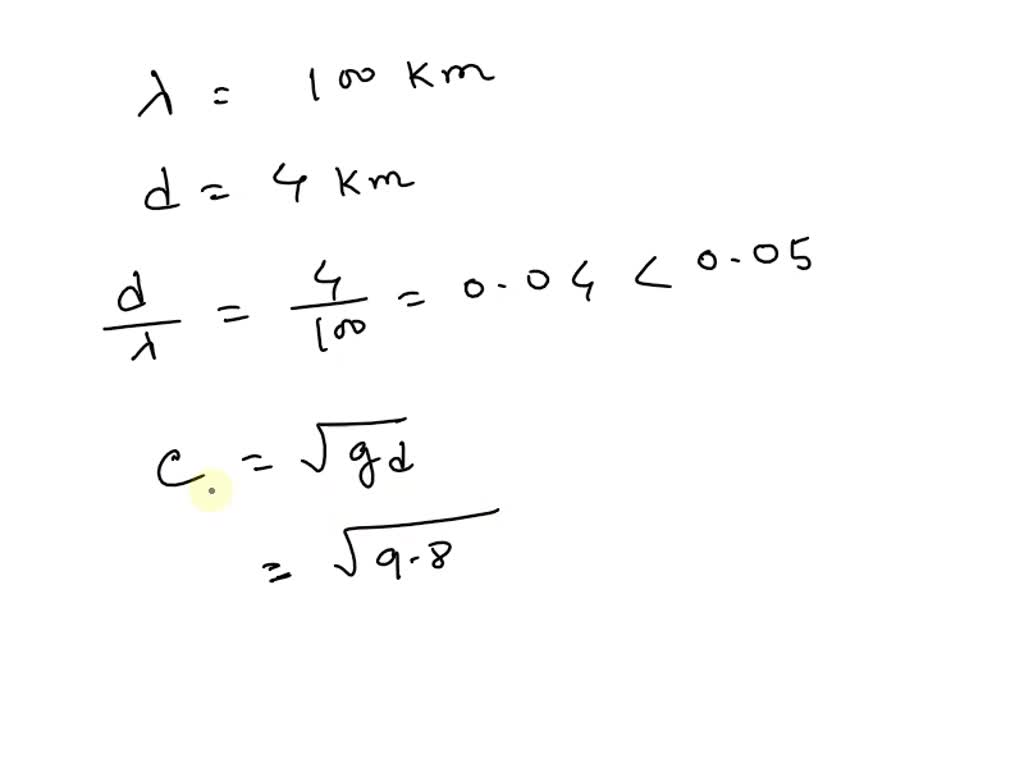 λ = 100 km
d = 4 km
d/λ = 4/100 = 0.04 < 0.05
C = √gd
= √9.8